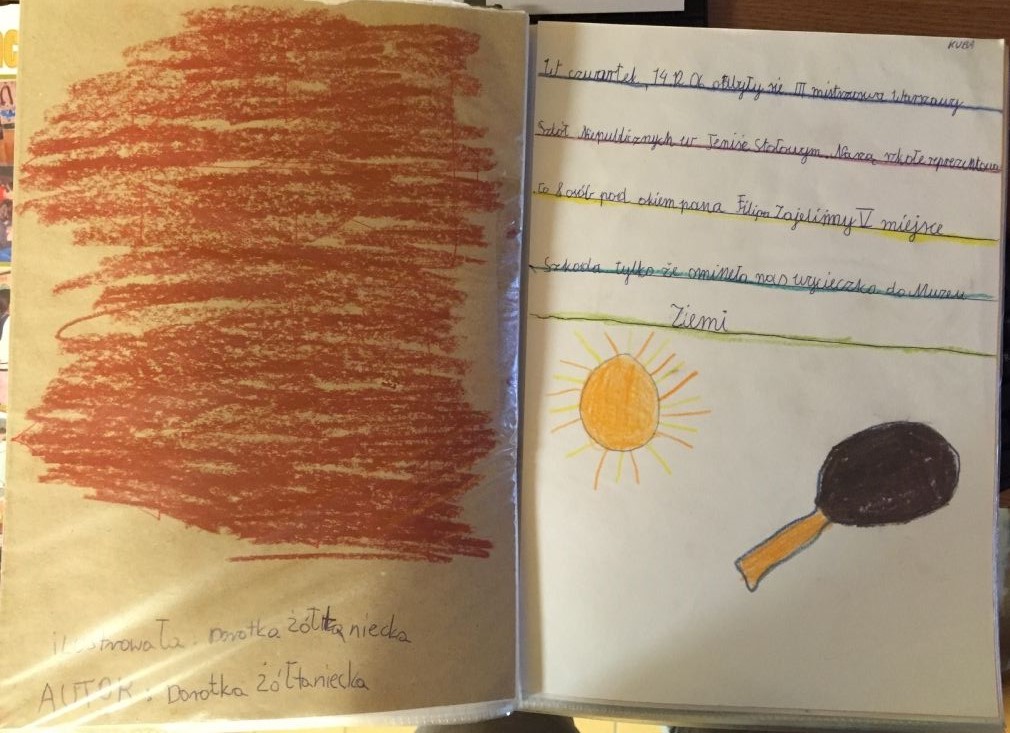 ilustrowała: Dorotka żółtaniecka
AUTOR: Dorotka żółtaniecka
KUBA
W czwartek, 14.12.06 odbyły się III mistrzowa Warszawy
Szkół Niepublicznych w Tenise Stołowym. Naszą szkołe reprezentowa
ło 8 osób pod okiem pana Filipa Zajeliśmy V miejsce
Szkoda tylko że omineła nas wycieczka do Muzeu
Ziemi